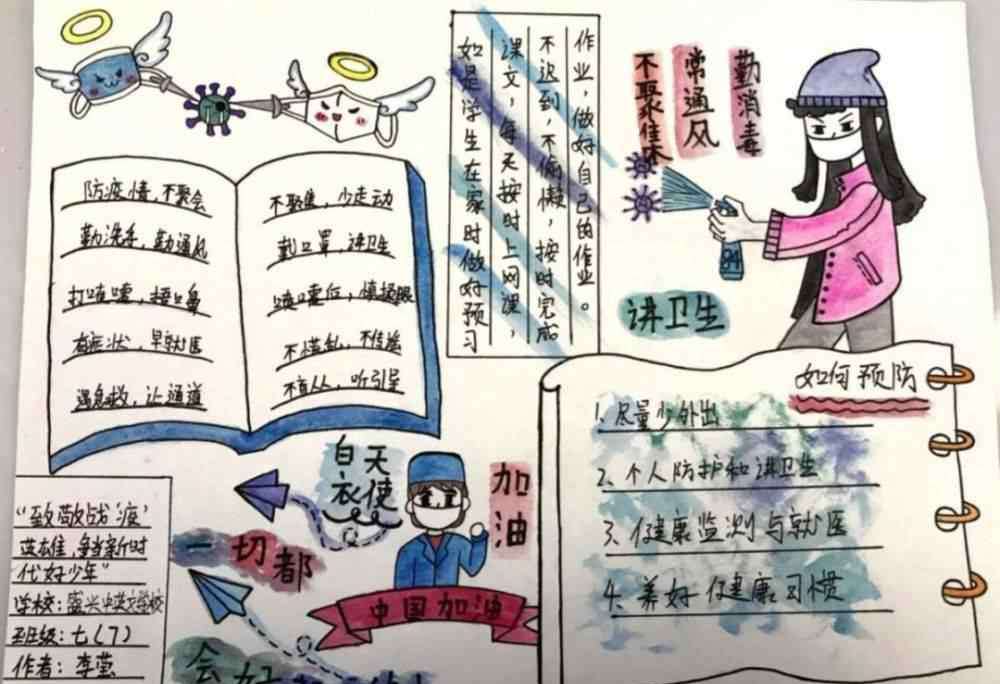 防疫情,不聚会
勤洗手,勤通风
打喷嚏,捂口鼻
有症状,早就医
遇急救,让通道
不聚集,少走动
戴口罩,讲卫生
不慌乱,不传谣
不盲从,听引导
作业,做好自己的作业。
不迟到,不偷懒,按时完成
课文,每天按时上网课,
如是学生在家时做好预习
不聚集
常通风
勤消毒
84
讲卫生
如何预防
1.尽量少外出
2.个人防护和讲卫生
3.健康监测与就医
4.养好健康习惯
白衣
天使
加油
一切都
会好
中国加油
“致敬战疫’
代好少年”
班级:七(7)
作者:李莹